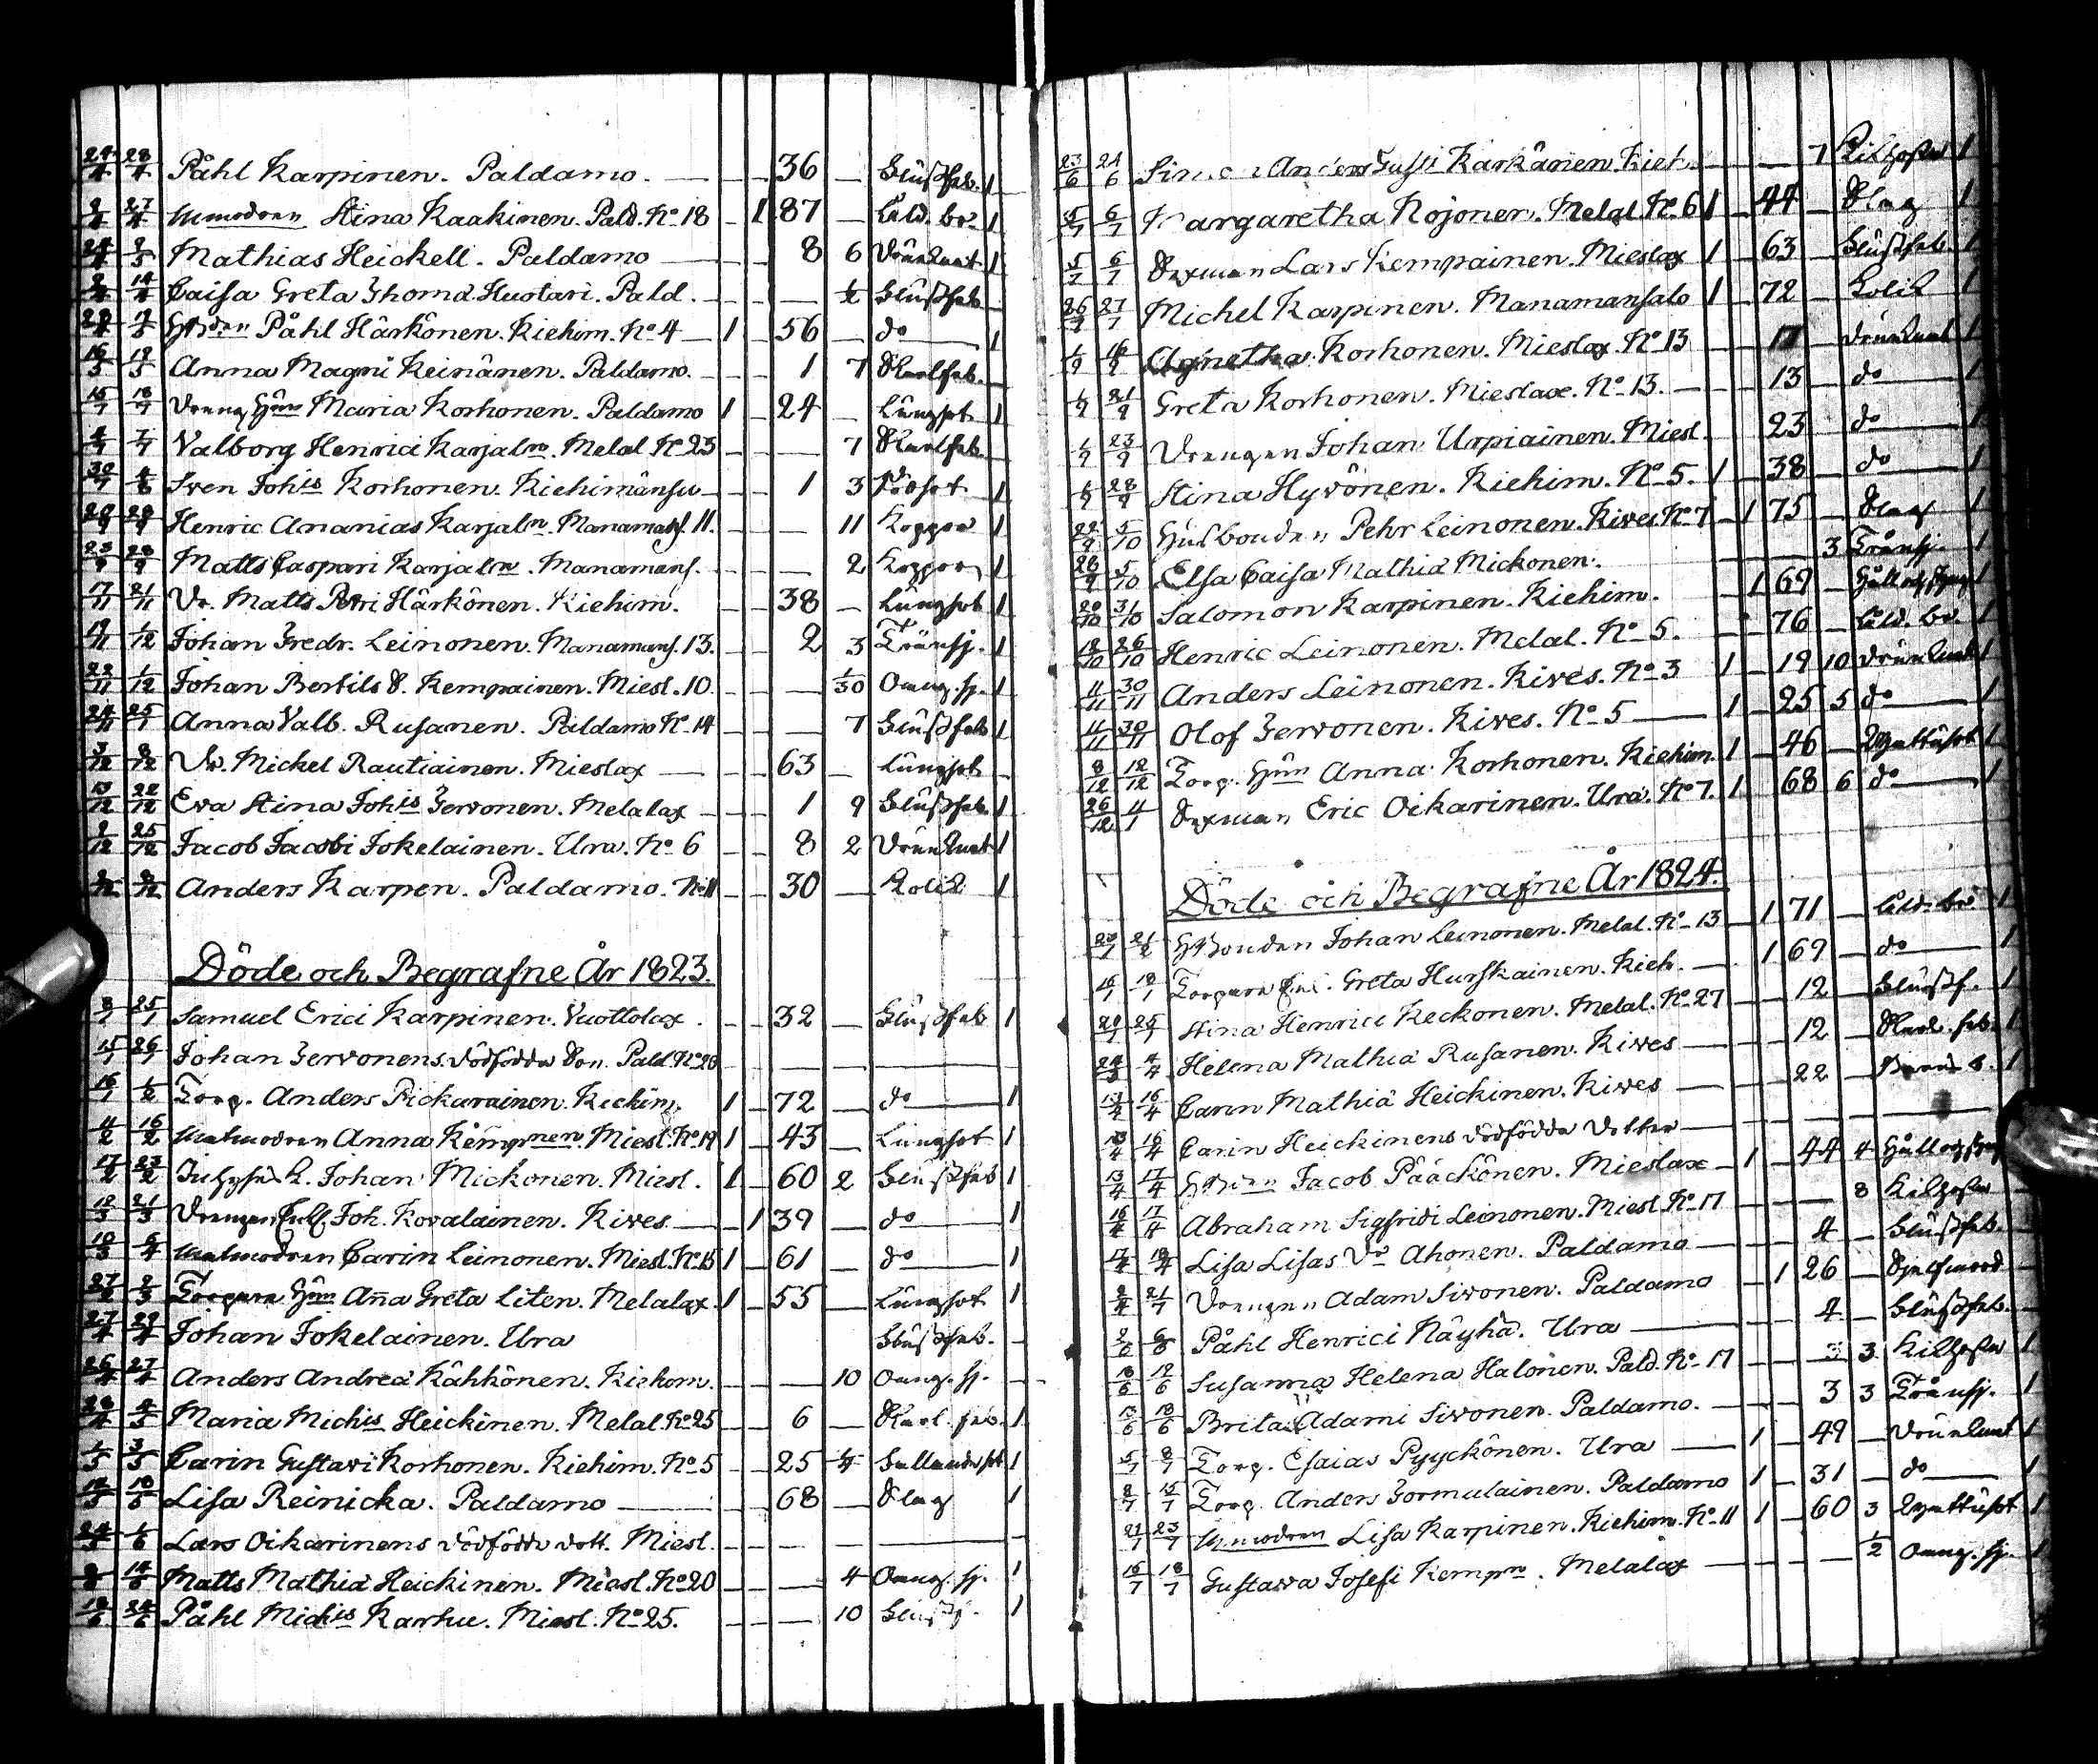 24/4 28/4 Påhl Karpinen. Paldamo. — 36 — Blüßfeb. 1
27/4 Umodren Stina Kaakinen. Pald. No 18 — 1 87 — Åld. br. 1
24/4 2/5 Mathias Heickell. Paldamo — 8 6 Drunknat. 1
14/4 Caisa Greta Thomæ Huotari. Pald. — — 1/2 Blüßfeb
Påhl Härkönen. Kiehim. No 4 — 1 — 56 — do — 1
16/5 19/5 Anna Magni Keinänen. Paldamo. — — 1 7 Skarlfeb.
15/7 18/7 Dreng Hün Maria Korhonen. Paldamo 1 — 24 — Lüngsot 1
4/7 7/7 Valborg Henrici Karjaln. Melal No 23 — — — 7 Skarlfeb.
30/7 4/8 Sven Johis Korhonen. Kiehimänsu — — 1 3 Rödsot 1
Henric Ananias Karjaln. Manamans. 11. — — — 11 Koppor 1
Matts Caspari Karjaln. Manamans. — — — 2 Koppor 1
17/11 21/11 Dr. Matts Petri Härkönen. Kiehim. — — 38 — Lüngsot 1
19/11 1/12 Johan Fredr. Leinonen. Manamans. 13. — — 2 3 Tränsj. 1
22/11 1/12 Johan Bertils S. Kempainen. Miesl. 10. — — — 1/30 Oang. sj. 1
24/11 25/1 Anna Valb. Rusanen. Paldamo No 14 — — — 7 Blüßfeb 1
3/12 8/12 Dr. Mickel Rautiainen. Mieslax — — 63 — Lüngsot —
13/12 22/12 Eva Stina Johis Jervonen. Melalax — — 1 9 Blüßfeb. 1
2/12 25/12 Jacob Jacobi Jokelainen. Ura. No 6 — — 8 2 Drunknat 1
Anders Karpen. Paldamo. No 11 — — 30 — Kolik 1
Döde och Begrafne År 1823.
8/1 25/1 Samuel Erici Karpinen. Vuottolax. — — 32 — Blüßfeb 1
15/1 26/1 Johan Jervonens dödfödda Son. Pald No 20 — — — — —
16/1 1/2 Torp. Anders Pickarainen. Kiehim. 1 — 72 — do — 1
11/2 16/2 Matmodren Anna Kempnen. Miesl. No 19 1 — 43 — Lungsot 1
17/2 23/2 Johan Mickonen. Miesl. 1 — 60 2 Blüßfeb 1
12/3 21/3 Drengen Joh. Kovalainen. Kives. — 1 39 — do — 1
Matmodren Carin Leinonen. Miesl. No 15 1 — 61 — do — 1
27/2 2/3 Torpare Hün Anna Greta Liten. Melalax. 1 — 55 — Lüngsot 1
27/4 29/4 Johan Jokelainen. Ura Blüßfeb. —
26/4 27/4 Anders Andreæ Kähkönen. Kiehom. — — — 10 Oang. sj. —
28/4 4/5 Maria Michis Heickinen. Melal. No 25 — — 6 — Skarl. feb. 1
1/5 3/5 Carin Gustavi Korhonen. Kiehim. No 5 — — 25 1/4 1
Lisa Reinicka. Paldamo — — 68 — Slag 1
24/5 1/6 Lars Oikarinens dödfödda dott. Miesl. — — — — —
Matts Mathiæ Heickinen. Miesl. No 20 — — — 4 Oang. sj. 1
Påhl Michis Karhu. Miesl. No 25. — — — 10 Blüßf. 1
23/6 24/6 Anders Karkänen. Kieh. — — 7 Kikhosta 1
5/7 6/7 Margaretha Kojonen. Melal. No 6 1 — 44 — Slag 1
5/7 6/7 Sexman Lars Kempainen. Mieslax 1 — 63 — Blüßfeb. 1
26/7 27/7 Michel Karpinen. Manamansalo 1 — 72 — Kolik 1
1/9 16/9 Agnetha Korhonen. Mieslax. No 13 — 17 — Drunknat 1
1/9 21/9 Greta Korhonen. Mieslax. No 13. — 13 — do — 1
1/9 23/9 Drengen Johan Urpiainen. Miesl. 23 — do — 1
1/9 28/9 Stina Hyvönen. Kiehim. No 5. 1 — 38 — do — 1
22/9 5/10 Husbonden Pehr Leinonen. Kives No 7 — 1 75 — Slag 1
28/9 5/10 Elsa Caisa Mathiæ Mickonen. — — 3 Tränsj. 1
20/10 31/10 Salomon Karpinen. Kiehim. — 1 69 — Håll och styng 1
18/10 26/10 Henric Leinonen. Melal. No 5. — — 76 — Åld. br. 1
11/11 30/11 Anders Leinonen. Kives. No 3 1 — 19 10 Drunknat 1
11/11 30/11 Olof Jervonen. Kives. No 5 — 1 — 25 5 do — 1
8/12 12/12 Torp. Hün Anna Korhonen. Kiehim. 1 — 46 — 1
26/12 4/1 Sexman Eric Oikarinen. Ura. No 7. 1 68 6 do — 1
Döde och Begrafne År 1824.
Hbonden Johan Leinonen. Melal. No 13 — 1 71 — Åld. br. 1
16/1 18/1 Torpare Greta Hurskainen. Kieh. — 1 69 — do — 1
20/1 25/1 Stina Henrici Keckonen. Melal. No 27 — — 12 — Blüßf. 1
24/3 4/4 Helena Mathiæ Rusanen. Kives — — 12 — Skarl. feb. 1
13/4 16/4 Carin Mathiæ Heickinen. Kives — — 22 — Barns b. 1
13/4 16/4 Carin Heickinens dödfödda dotter — — — — —
13/4 17/4 Jacob Pääckönen. Mieslax — 1 — 44 4 Håll och styng
16/4 17/4 Abraham Sigfridi Leinonen. Miesl No 17 — — — 8 Kikhosta
17/4 18/4 Lisa Lisas Dr Ahonen. Paldamo — — 4 — Blüßfeb. —
Drengen Adam Sivonen. Paldamo — 1 26 — Sjelfmord
Påhl Henrici Näyhä. Ura — 4 — Blüßfeb.
Susanna Helena Halonen. Pald. No 17 — — 3 3 Kikhosta 1
13/6 18/6 Brita Adami Sivonen. Paldamo. — — 3 3 Tränsj. 1
5/7 8/7 Torp. Esaias Pyyckönen. Ura — 1 — 49 — Drunknat 1
8/7 15/7 Torp. Anders Tormulainen. Paldamo 1 — 31 — do — 1
21/7 23/7 Umodren Lisa Karpinen. Kiehim. No 11 1 — 60 3 1
16/7 18/7 Gustawa Josefi Kempn. Melalax — — — 1/2 Oang. sj. 1